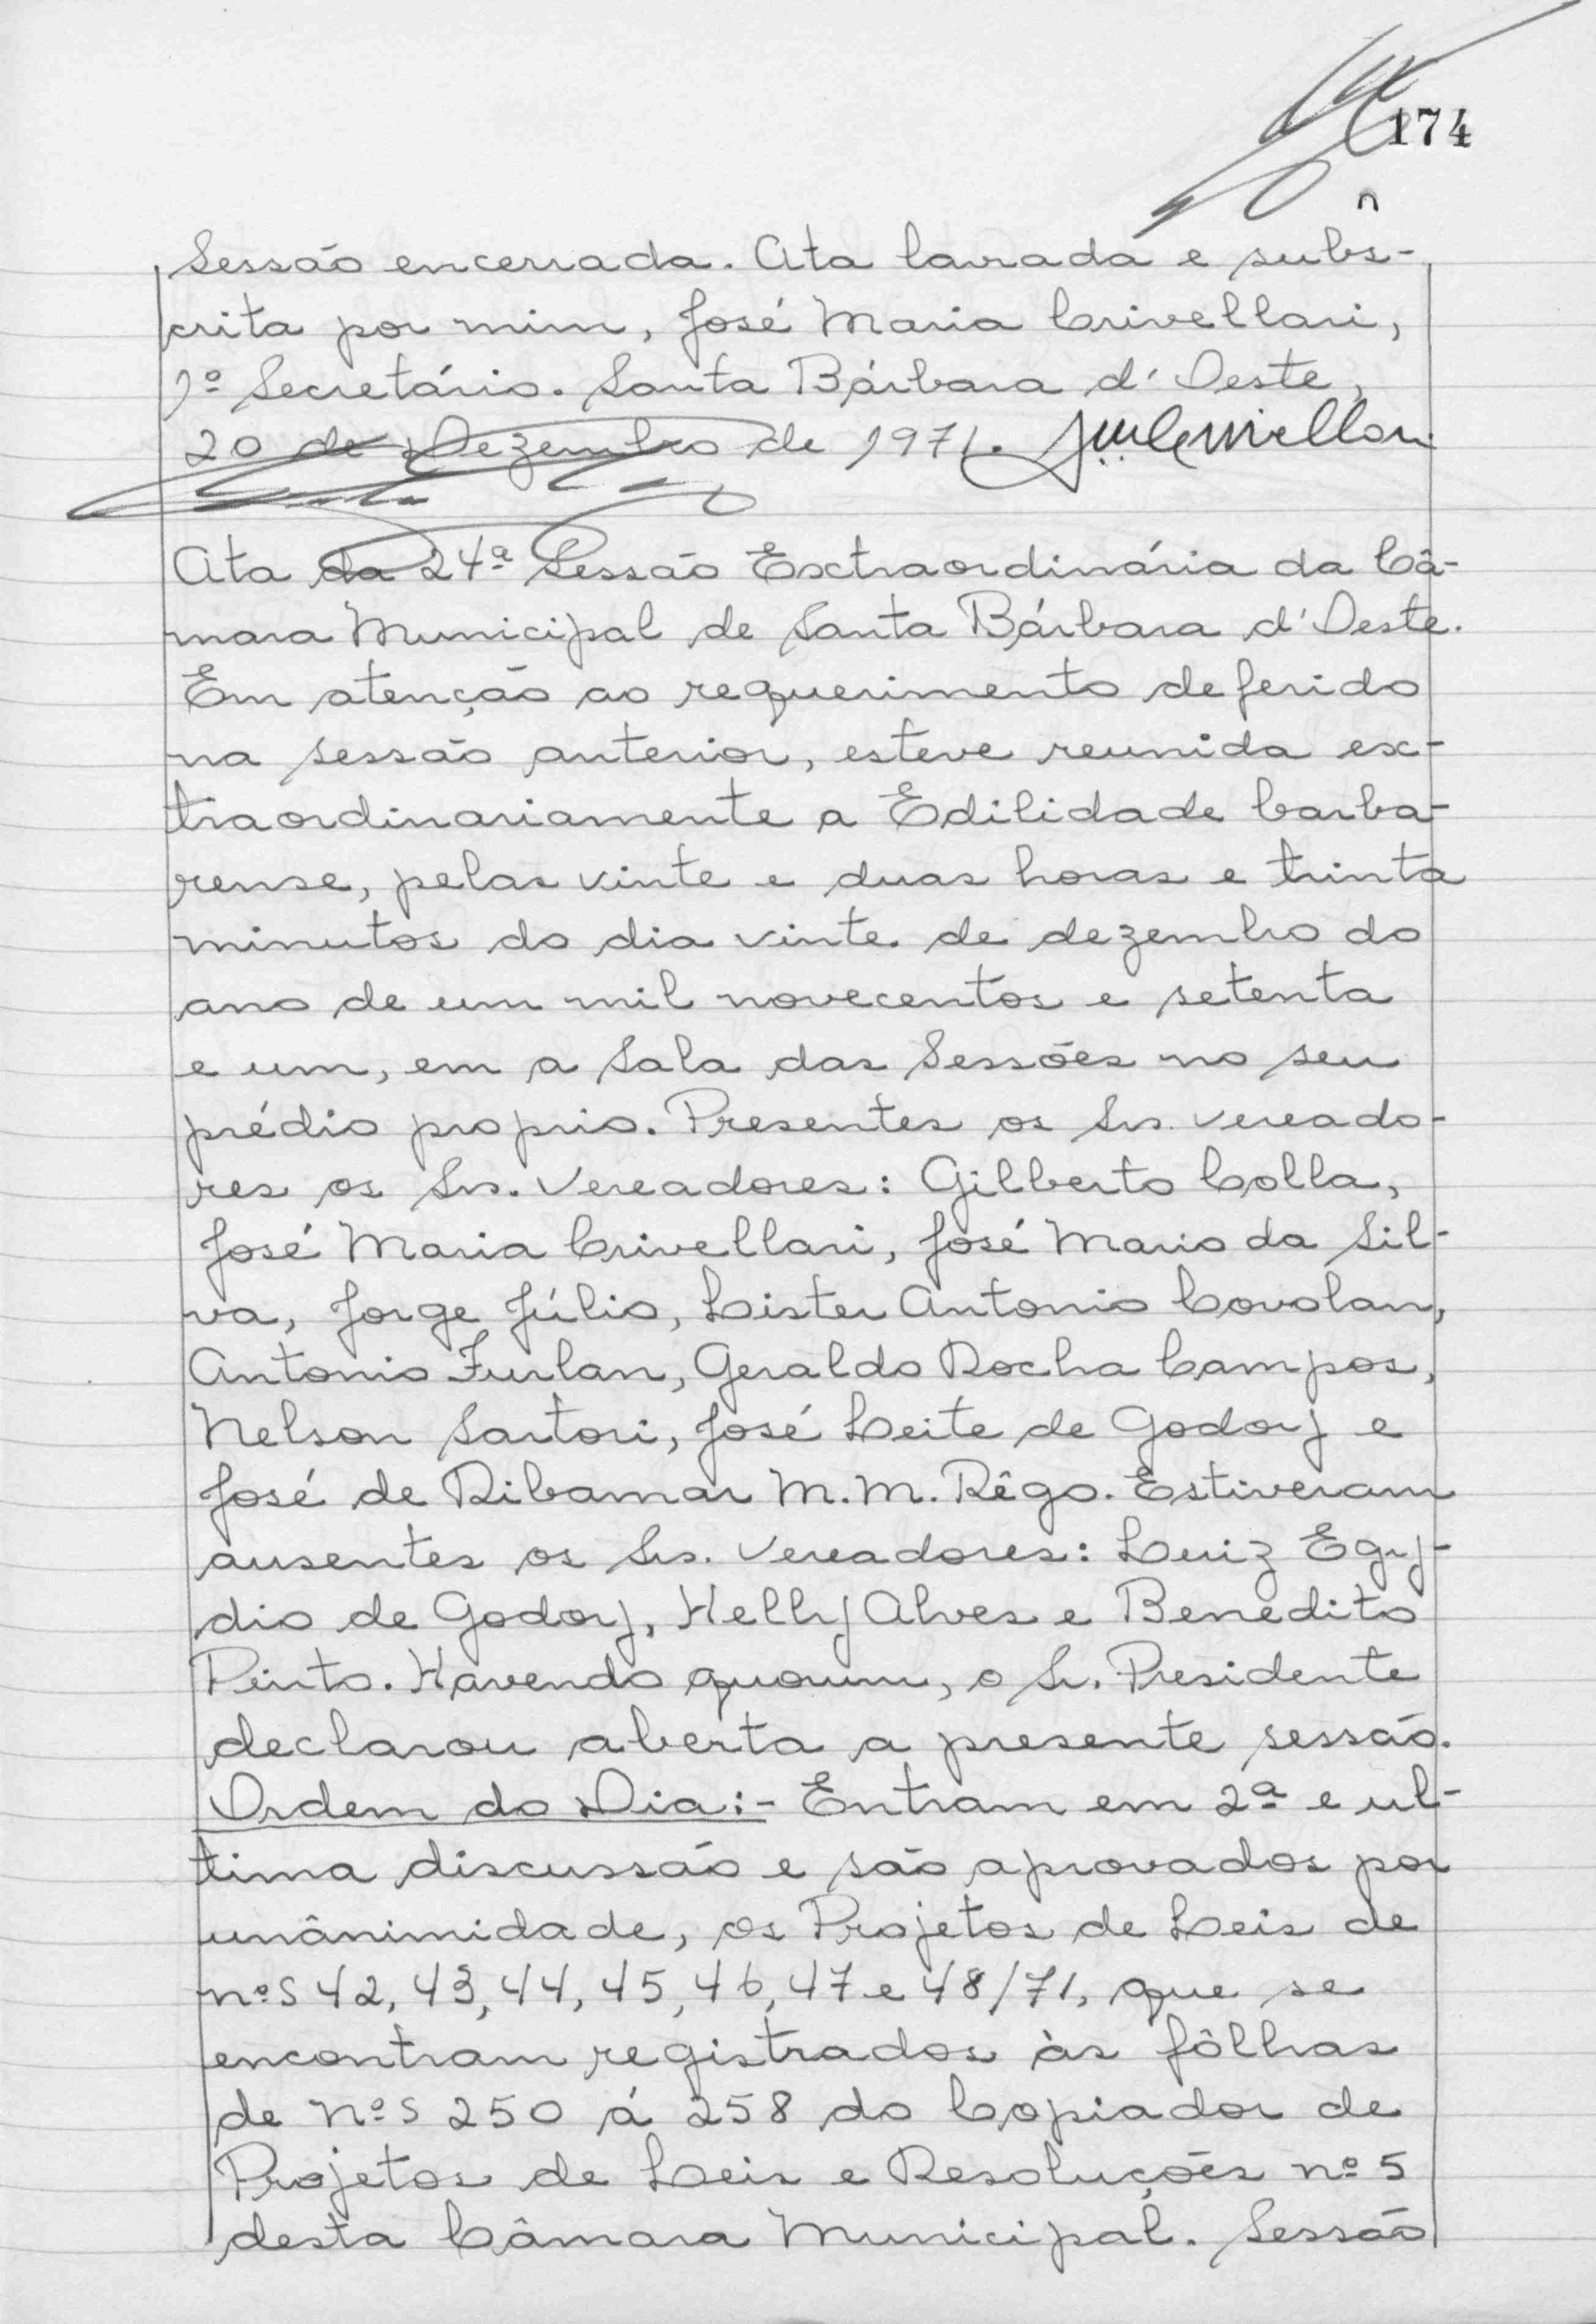 174
Sessão encerrada. Ata lavrada e subs-
crita por mim, José Maria Crivellari,
1º Secretário. Santa Bárbara d'Oeste,
20 de Dezembro de 1971.
Ata da 24ª Sessão Extraordinária da Câ-
mara Municipal de Santa Bárbara d'Oeste.
Em atenção ao requerimento deferido
na sessão anterior, esteve reunida ex-
traordinariamente a Edilidade barba-
rense, pelas vinte e duas horas e trinta
minutos do dia vinte de dezembro do
ano de um mil novecentos e setenta
e um, em a Sala das Sessões no seu
prédio proprio. Presentes os Srs. vereado-
res os Srs. Vereadores: Gilberto Colla,
José Maria Crivellari, José Mario da Sil-
va, Jorge Júlio, Lister Antonio Covolan,
Antonio Furlan, Geraldo Rocha Campos,
Nelson Sartori, José Leite de Godoy e
José de Ribamar M.M. Rêgo. Estiveram
ausentes os Srs. Vereadores: Luiz Egy-
dio de Godoy, Helly Alves e Benedito
Pinto. Havendo quorum, o Sr. Presidente
declarou aberta a presente sessão.
Ordem do Dia:- Entram em 2ª e ul-
tima discussão e são aprovados por
unânimidade, os Projetos de Leis de
nºs 42, 43, 44, 45, 46, 47 e 48/71, que se
encontram registrados às fôlhas
de nºs 250 á 258 do Copiador de
Projetos de Leis e Resoluções nº 5
desta Câmara Municipal. Sessão